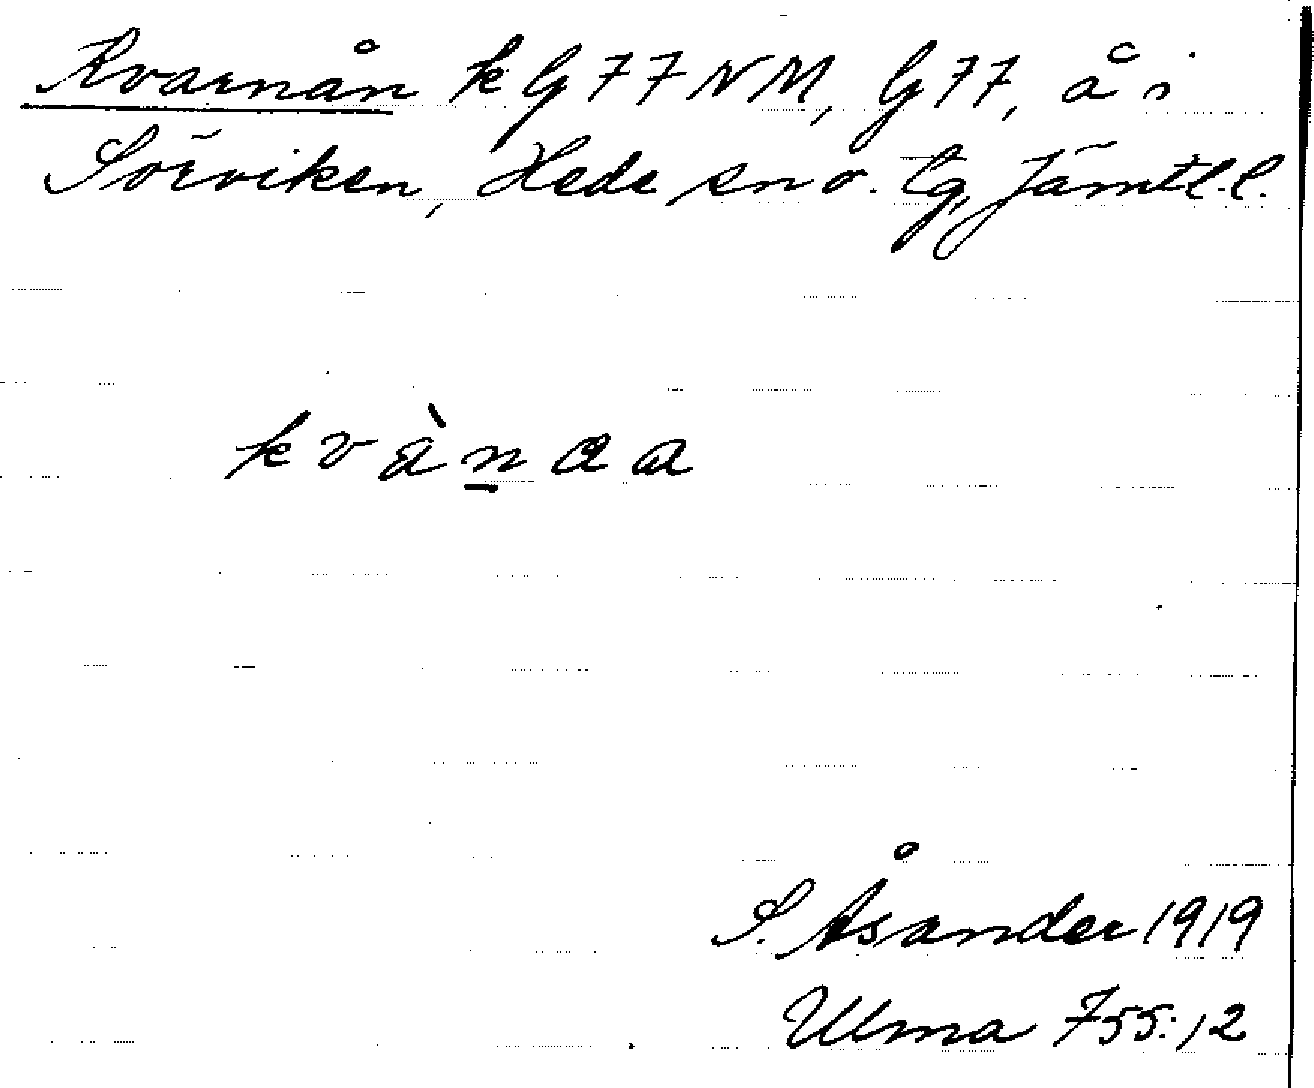 Kvarnån k G 77 NM, G 77, å i
Sörviken, Hede sn o. tg, Jämtl. l.
kvànaa
S. Åsander 1919
Ulma 755:12